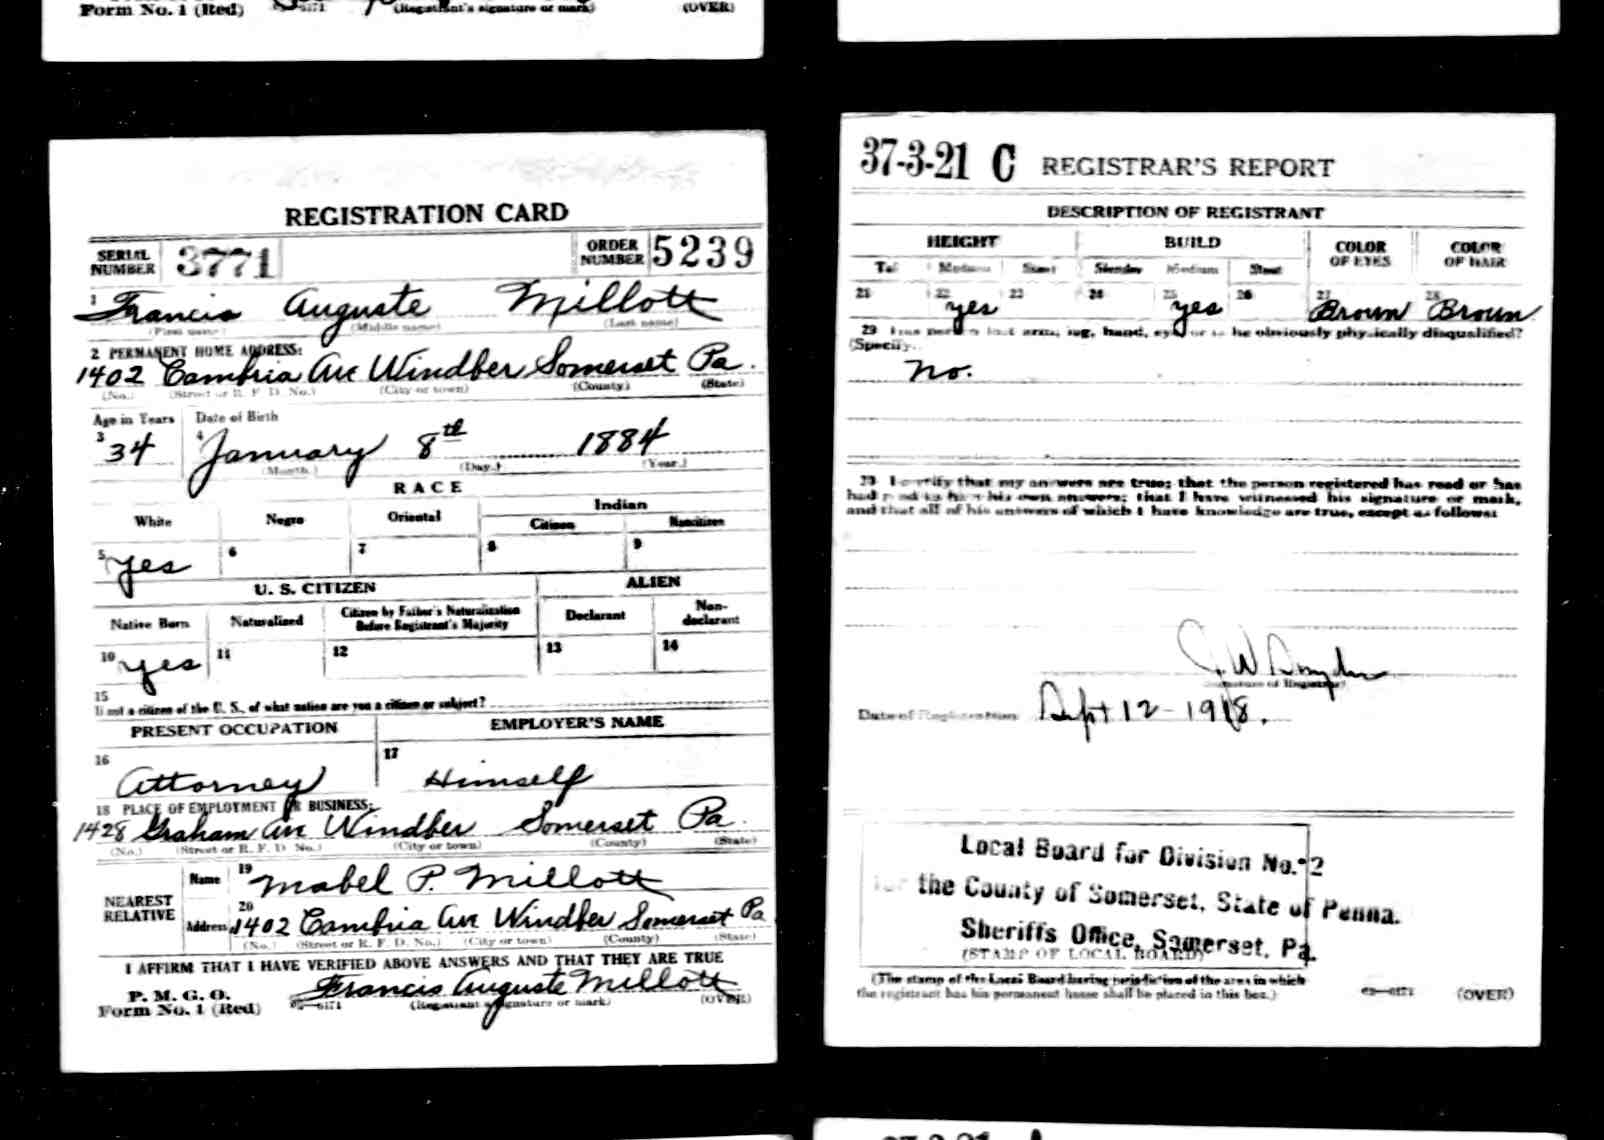 Form No. 1 (Red) (Registrant's signature or mark) (OVER)
REGISTRATION CARD
SERIAL NUMBER 3771 ORDER NUMBER 5239
1 Francis Auguste Millott
(First name) (Middle name) (Last name)
2 PERMANENT HOME ADDRESS:
1402 Cambria Ave Windber Somerset Pa.
(No.) (Street or R. F. D. No.) (City or town) (County) (State)
Age in Years Date of Birth
3 34 4 January 8th 1884
(Month.) (Day.) (Year.)
RACE
White Negro Oriental Indian
Citizen Noncitizen
5 Yes 6 7 8 9
U. S. CITIZEN ALIEN
Native Born Naturalized Citizen by Father's Naturalization Before Registrant's Majority Declarant Non-declarant
10 yes 11 12 13 14
15
If not a citizen of the U. S., of what nation are you a citizen or subject?
PRESENT OCCUPATION EMPLOYER'S NAME
16 Attorney 17 Himself
18 PLACE OF EMPLOYMENT OR BUSINESS:
1428 Graham Ave Windber Somerset Pa.
(No.) (Street or R. F. D. No.) (City or town) (County) (State)
NEAREST RELATIVE
Name 19 Mabel P. Millott
Address 20 1402 Cambria Ave Windber Somerset Pa
(No.) (Street or R. F. D. No.) (City or town) (County) (State)
I AFFIRM THAT I HAVE VERIFIED ABOVE ANSWERS AND THAT THEY ARE TRUE
P. M. G. O.
Form No. 1 (Red) Francis Auguste Millott
(Registrant's signature or mark) (OVER)
37-3-21 C REGISTRAR'S REPORT
DESCRIPTION OF REGISTRANT
HEIGHT BUILD COLOR OF EYES COLOR OF HAIR
Tall Medium Short Slender Medium Stout
21 22 yes 23 24 25 yes 26 27 Brown 28 Brown
29 Has person lost arm, leg, hand, eye, or is he obviously physically disqualified?
(Specify.)
No.
30 I certify that my answers are true; that the person registered has read or has
had read to him his own answers; that I have witnessed his signature or mark,
and that all of his answers of which I have knowledge are true, except as follows:
J. W. Snyder
(Signature of Registrar)
Date of Registration Sept 12 - 1918.
Local Board for Division No. 2
for the County of Somerset, State of Penna.
Sheriffs Office, Somerset, Pa.
(STAMP OF LOCAL BOARD)
(The stamp of the Local Board having jurisdiction of the area in which
the registrant has his permanent home shall be placed in this box.)
(OVER)